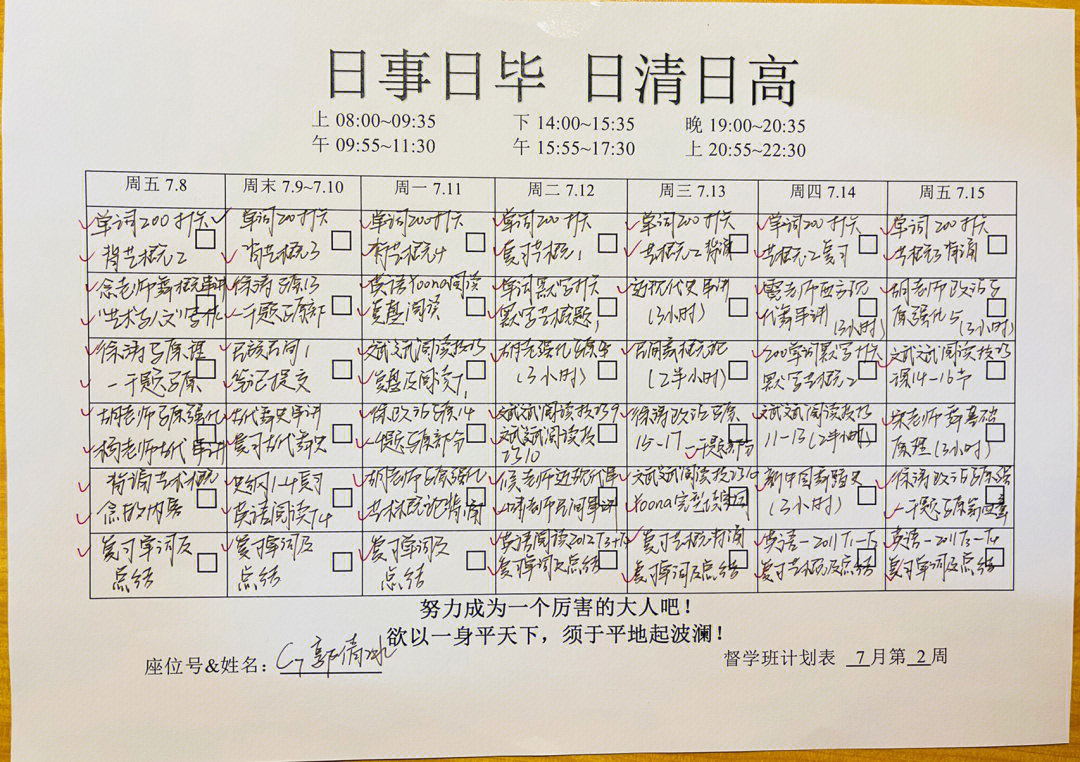 日事日毕 日清日高
上 08:00~09:35 下 14:00~15:35 晚 19:00~20:35
午 09:55~11:30 午 15:55~17:30 上 20:55~22:30
周五 7.8 周末 7.9~7.10 周一 7.11 周二 7.12 周三 7.13 周四 7.14 周五 7.15
单词200打卡 单词200打卡 单词200打卡 单词200打卡 单词200打卡 单词200打卡 单词200打卡
背艺概论2 背艺概论3 背艺概论4 复习艺概论1 艺概论2背诵 艺概论2复习 艺概论3背诵
徐涛马原13 英语Yoona阅读 单词默写打卡 近现代史串讲 胡老师政治马
"艺术与人文" 一千题马原部 复盘阅读 默写艺概题1 (3小时) 代舞串讲(3小时) 原强化5(3小时)
徐涛马原理 民族民间1 斌斌阅读技巧5 胡老强化马原 民间舞概论 200单词默写打卡 斌斌阅读技巧
一千题马原 笔记提交 复盘及阅读1 (3小时) (2半小时) 默写艺概论2 课14-16节
胡老师马原强化 古代舞史串讲 徐政治马原14 斌斌阅读技巧9 徐涛政治马原 斌斌阅读技巧 宋老师舞基础
杨老师古代串讲 复习古代舞史 一千题马原部分 斌斌阅读技巧10 15-17一千题部分 11-13(2半小时) 原理(3小时)
背诵艺术概论 史纲1-4复习 胡老师马原强化 侯老师近现代串 斌斌阅读技巧 新中国舞蹈史 徐涛政治马原
念的内容 英语阅读T4 艺术概论背诵 老师民间串讲 Yoona完型 (3小时) 一千题马原
复习单词及 复习单词及 复习单词及 英语阅读2012T3+T4 复习艺概背诵 英语一2011T1-T2 英语一2011T3-T4
总结 总结 总结 复习单词及总结 复习单词及总结 复习艺概及总结 复习单词及总结
努力成为一个厉害的大人吧！
欲以一身平天下，须于平地起波澜！
座位号&姓名：C7 郭倩冰 督学班计划表 7月第 2 周